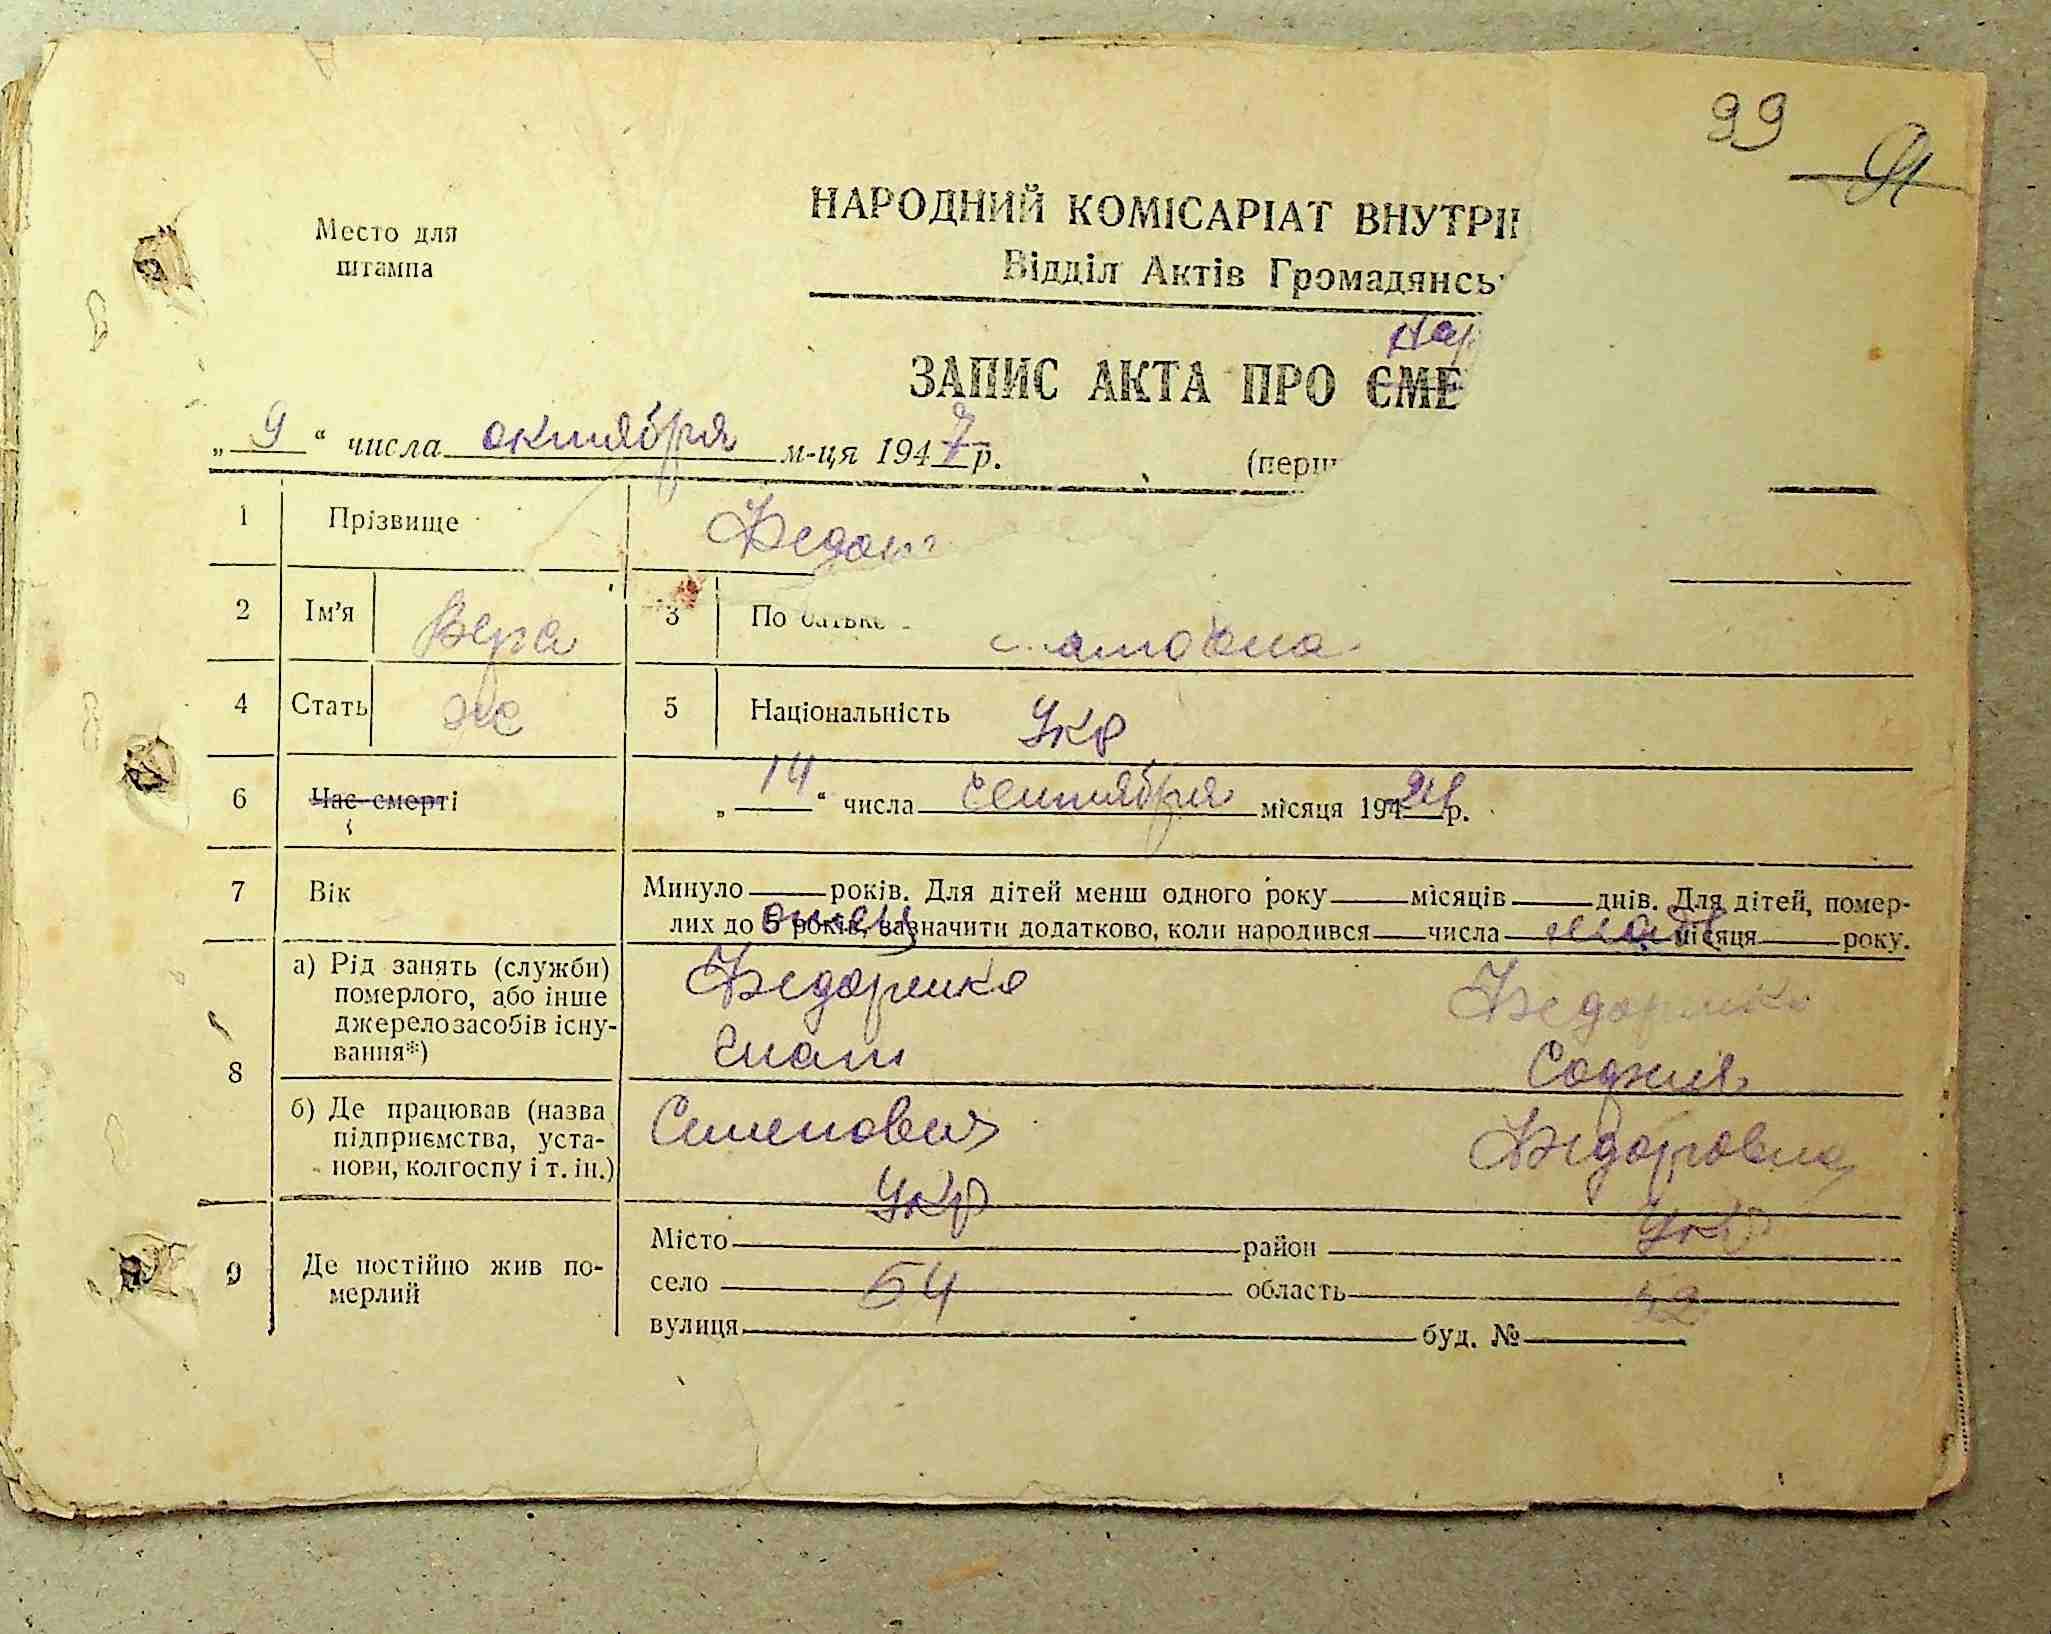 99 91
Место для
штампа
НАРОДНИЙ КОМІСАРІАТ ВНУТРІ
Відділ Актів Громадянсь
ЗАПИС АКТА ПРО СМЕ
„ 9 “ числа октября м-ця 1947 р. (перш
1 Прізвище Федор
2 Ім'я Вера 3 По батьке
4 Стать ж 5 Національність Укр
6 Час смерті „ 14 “ числа сентября місяця 194 24 р.
7 Вік Минуло років. Для дітей менш одного року місяців днів. Для дітей, помер-
лих до 5 років, зазначити додатково, коли народився числа місяця року.
отец мать
8 а) Рід занять (служби)
померлого, або інше
джерело засобів існу-
вання*)
Федоренко Федоренко
Игнат София
б) Де працював (назва
підприємства, уста-
нови, колгоспу і т. ін.)
Семенович Федоровна
Укр Укр
9 Де постійно жив по-
мерлий
Місто район
село 54 область 42
вулиця буд. №